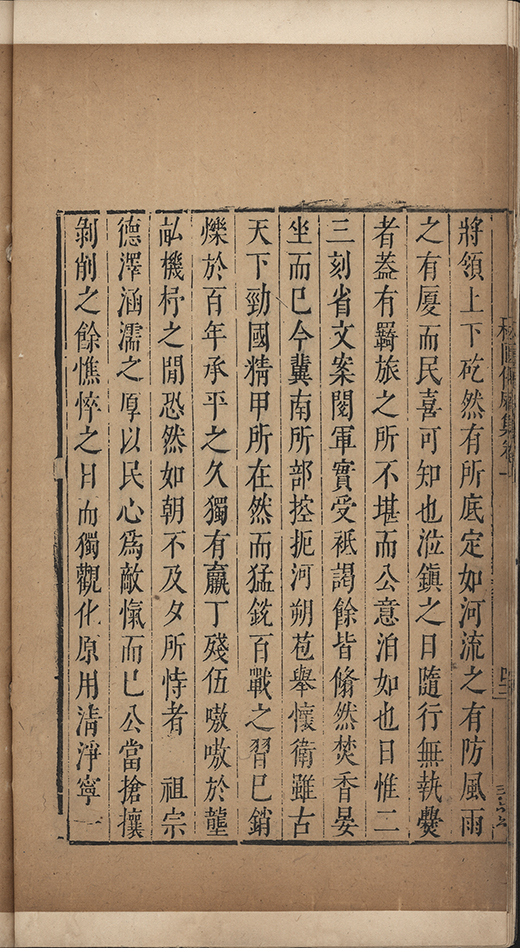 將領上下矻然有所底定如河流之有防風雨
之有厦而民喜可知也涖鎮之日隨行無執爨
者葢有羇旅之所不堪而公意泊如也日惟二
三刻省文案閱軍實受祗謁餘皆翛然焚香晏
坐而已今冀南所部控扼河朔苞舉懷衛雖古
天下勁國精甲所在然而猛銳百戰之習已銷
爍於百年承平之久獨有羸丁殘伍嗷嗷於壟
畝機杼之閒恐然如朝不及夕所恃者 祖宗
德澤涵濡之厚以民心爲敵愾而已公當搶攘
剝削之餘憔悴之日而獨觀化原用淸淨寧一